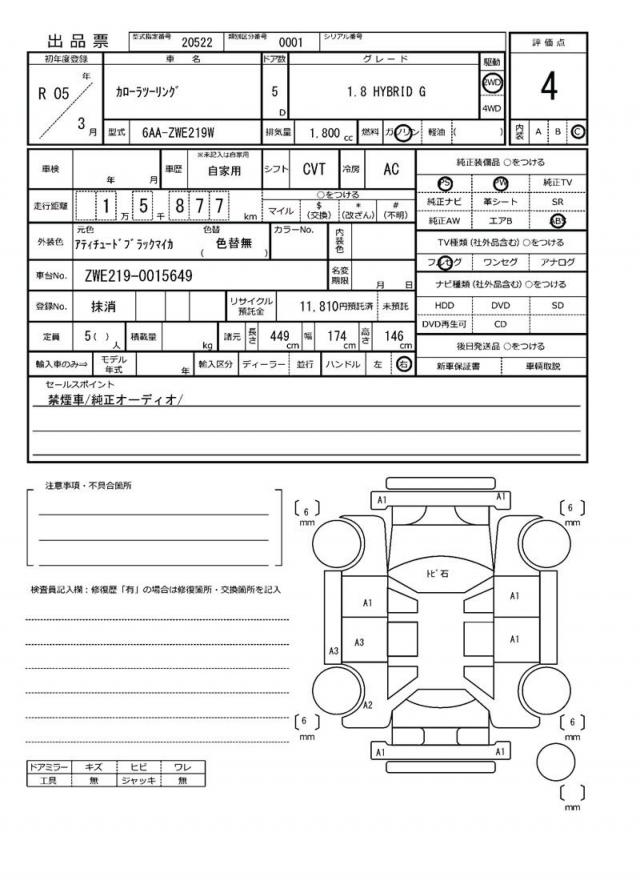 出品票
型式指定番号 20522 類別区分番号 0001 シリアル番号
評価点
4
内装 A B C
初年度登録 車名 ドア数 グレード 駆動
R 05 年 3 月
カローラツーリング
5 D
1.8 HYBRID G
2WD
4WD
型式 6AA-ZWE219W 排気量 1.800 cc 燃料 ガソリン 軽油 ( )
車検 年 月 車歴 ※未記入は自家用 自家用 シフト CVT 冷房 AC
走行距離 1 万 5 千 8 7 7 km
○をつける
マイル $ (交換) * (改ざん) # (不明)
外装色 元色 アティチュードブラックマイカ 色替 ( 色替無 ) カラーNo. 内装色
車台No. ZWE219-0015649 名変期限 月 日
登録No. 抹消 リサイクル預託金 11,810円預託済 未預託
定員 5( ) 人 積載量 kg 諸元 長さ 449 cm 幅 174 cm 高さ 146 cm
輸入車のみ⇒ モデル年式 年 輸入区分 ディーラー 並行 ハンドル 左 右
純正装備品 ○をつける
PS PW 純正TV
純正ナビ 革シート SR
純正AW エアB ABS
TV種類 (社外品含む) ○をつける
フルセグ ワンセグ アナログ
ナビ種類 (社外品含む) ○をつける
HDD DVD SD
DVD再生可 CD
後日発送品 ○をつける
新車保証書 車輌取説
セールスポイント
禁煙車/純正オーディオ/
注意事項・不具合箇所
検査員記入欄：修復歴「有」の場合は修復箇所・交換箇所を記入
ドアミラー キズ ヒビ ワレ
工具 無 ジャッキ 無
A1 A1
[ 6 ] mm
[ 6 ] mm
トビ石
A1 A1
A3 A3 A1
A2
[ 6 ] mm
[ 6 ] mm
A1 A1
[ ] mm